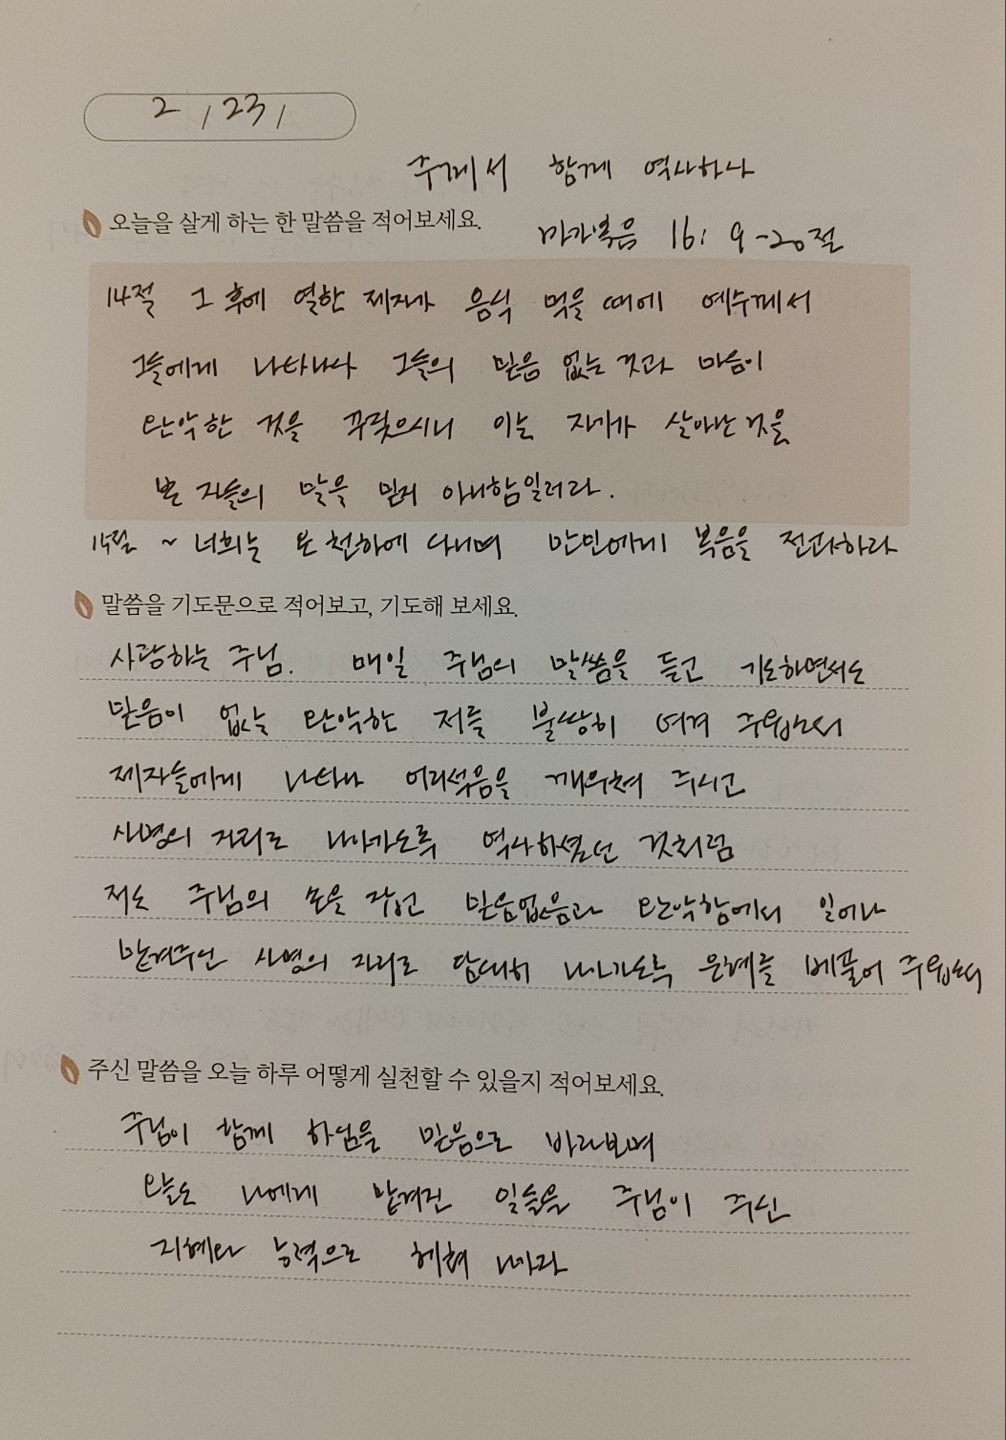 2 / 23 /
주께서 함께 역사하사
오늘을 살게 하는 한 말씀을 적어보세요.
마가복음 16: 9-20절
14절 그 후에 열한 제자가 음식 먹을 때에 예수께서
그들에게 나타나사 그들의 믿음 없는 것과 마음이
완악한 것을 꾸짖으시니 이는 자기가 살아난 것을
본 자들의 말을 믿지 아니함일러라.
15절 ~ 너희는 온 천하에 다니며 만민에게 복음을 전파하라
말씀을 기도문으로 적어보고, 기도해 보세요.
사랑하는 주님. 매일 주님의 말씀을 듣고 기도하면서도
믿음이 없는 완악한 저를 불쌍히 여겨 주옵소서
제자들에게 나타나 어리석음을 깨우쳐 주시고
사명의 자리로 나아가도록 역사하셨던 것처럼
저도 주님의 손을 잡고 믿음없음과 완악함에서 일어나
맡겨주신 사명의 자리로 담대히 나아가도록 은혜를 베풀어 주옵소서
주신 말씀을 오늘 하루 어떻게 실천할 수 있을지 적어보세요.
주님이 함께 하심을 믿음으로 바라보며
오늘도 나에게 맡겨진 일들을 주님이 주신
지혜와 능력으로 헤쳐 나가라